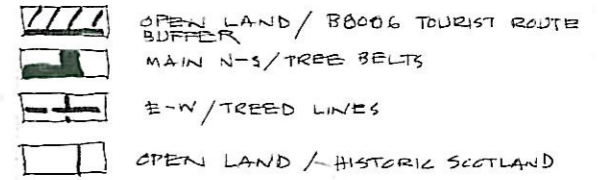 OPEN LAND / B8006 TOURIST ROUTE
BUFFER
MAIN N-S / TREE BELTS
E-W / TREED LINES
OPEN LAND / HISTORIC SCOTLAND